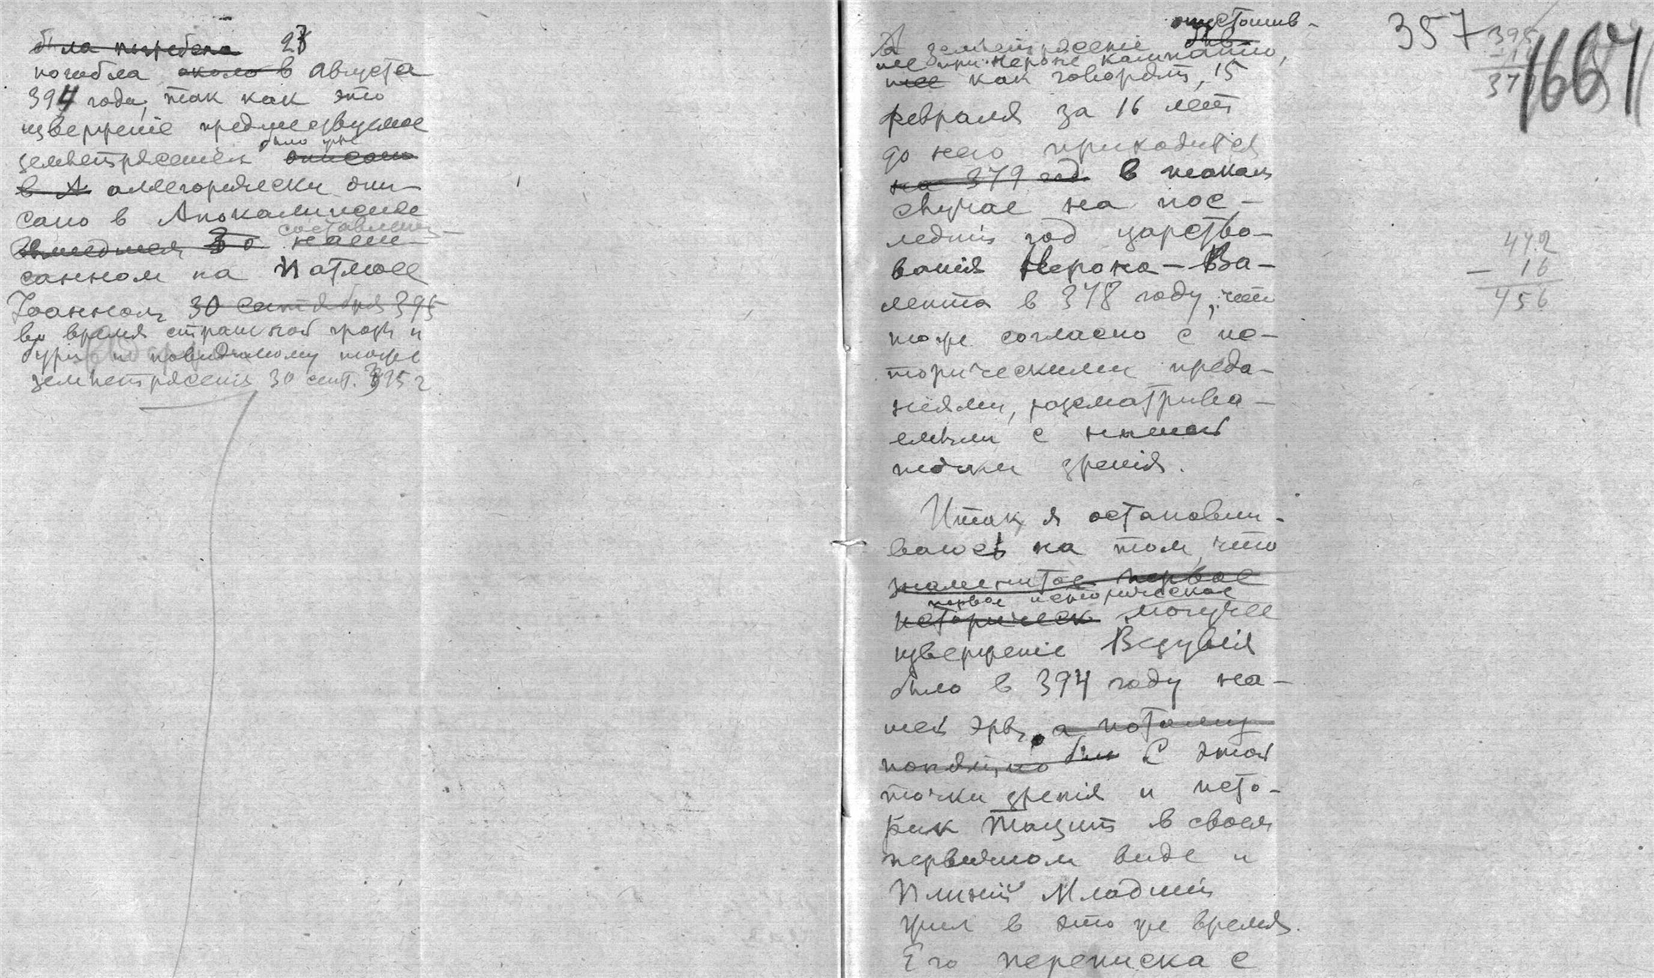 была погребена 23
погибла около в августа
394 года, так как это
извержение предшествуемое
землетрясением было уже описано
в А аллегорически опи-
сано в Апокалипсисе
составлен-
санном на Патмосе
Іоанном 30 сентября 395
во время страшной грозы и
бури и повидимому тоже
землетрясенія 30 сент. 395 г
357
395
1667
опустошив-
А землетрясеніе
шее при Нероне Кампанію,
шее как говорят, 15
февраля за 16 лет
до него приходится
на 379 год в таком
случае на пос-
ледний год царство-
вания Нерона-Ва-
лента в 378 году, что
тоже согласно с ис-
торическими преда-
ніями, рассматрива-
емыми с нашей
точки зренія.
472
- 16
456
Итак я остановли-
ваюсь на том, что
знаменитое первое
первое историческое
историческ могучее
извержение Везувія
было в 394 году на-
шей эры, а потому
был С этой
точки зренія и исто-
рик Тацит в своем
первичном виде и
Плиний Младший
жил в это же время.
Его переписка с